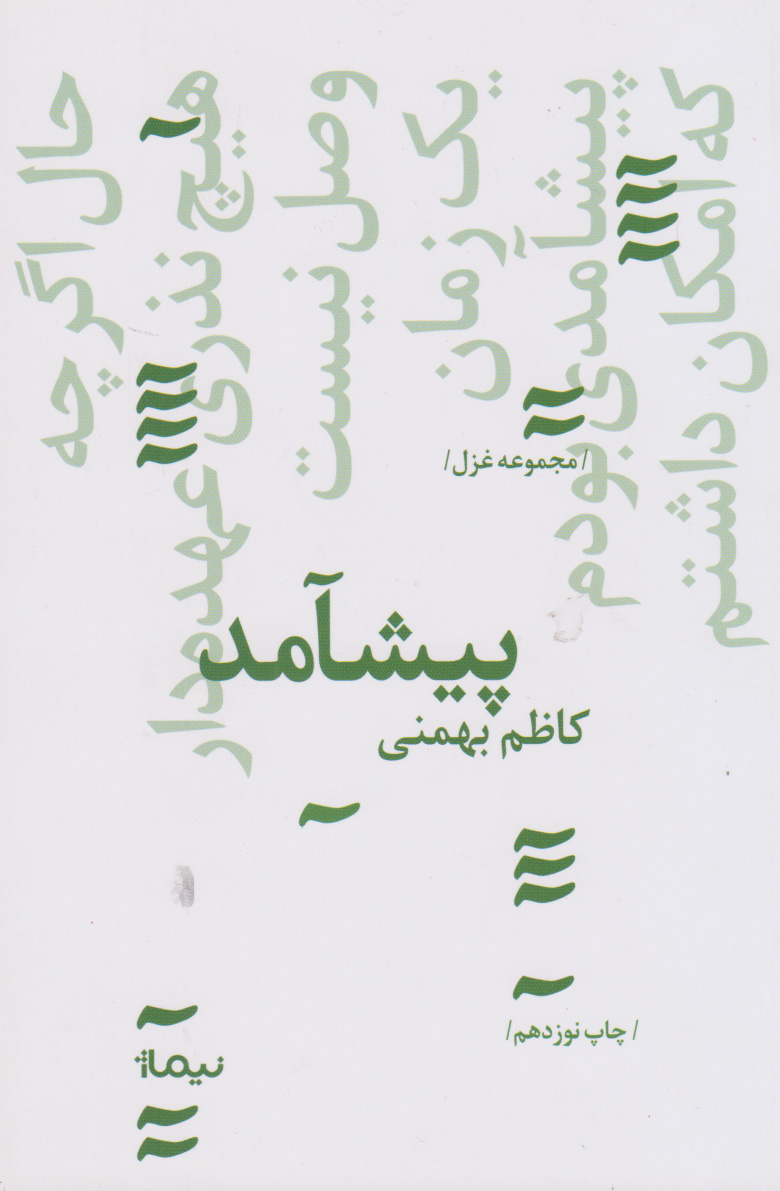 حال اگرچه
هیچ نذری عهده‌دار
وصل نیست
یک زمان
پیشآمدی بودم
که امکان داشتم
/ مجموعه غزل /
پیشآمد
کاظم بهمنی
/ چاپ نوزدهم /
نیماژ